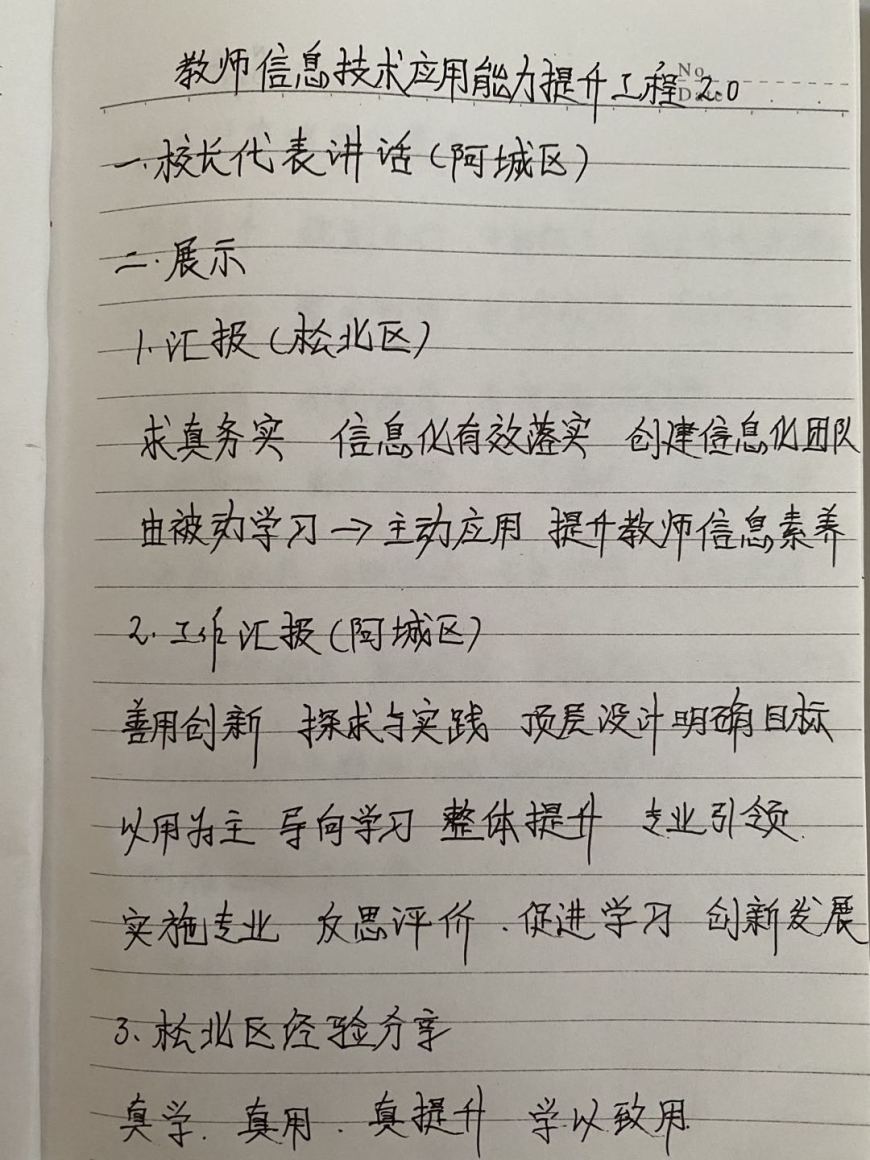 教师信息技术应用能力提升工程2.0
No
Date
一.校长代表讲话(阿城区)
二.展示
1.汇报(松北区)
求真务实 信息化有效落实 创建信息化团队
由被动学习→主动应用 提升教师信息素养
2.工作汇报(阿城区)
善用创新 探求与实践 顶层设计明确目标
以用为主 导向学习 整体提升 专业引领
实施专业 反思评价.促进学习 创新发展
3、松北区经验分享
真学.真用.真提升 学以致用